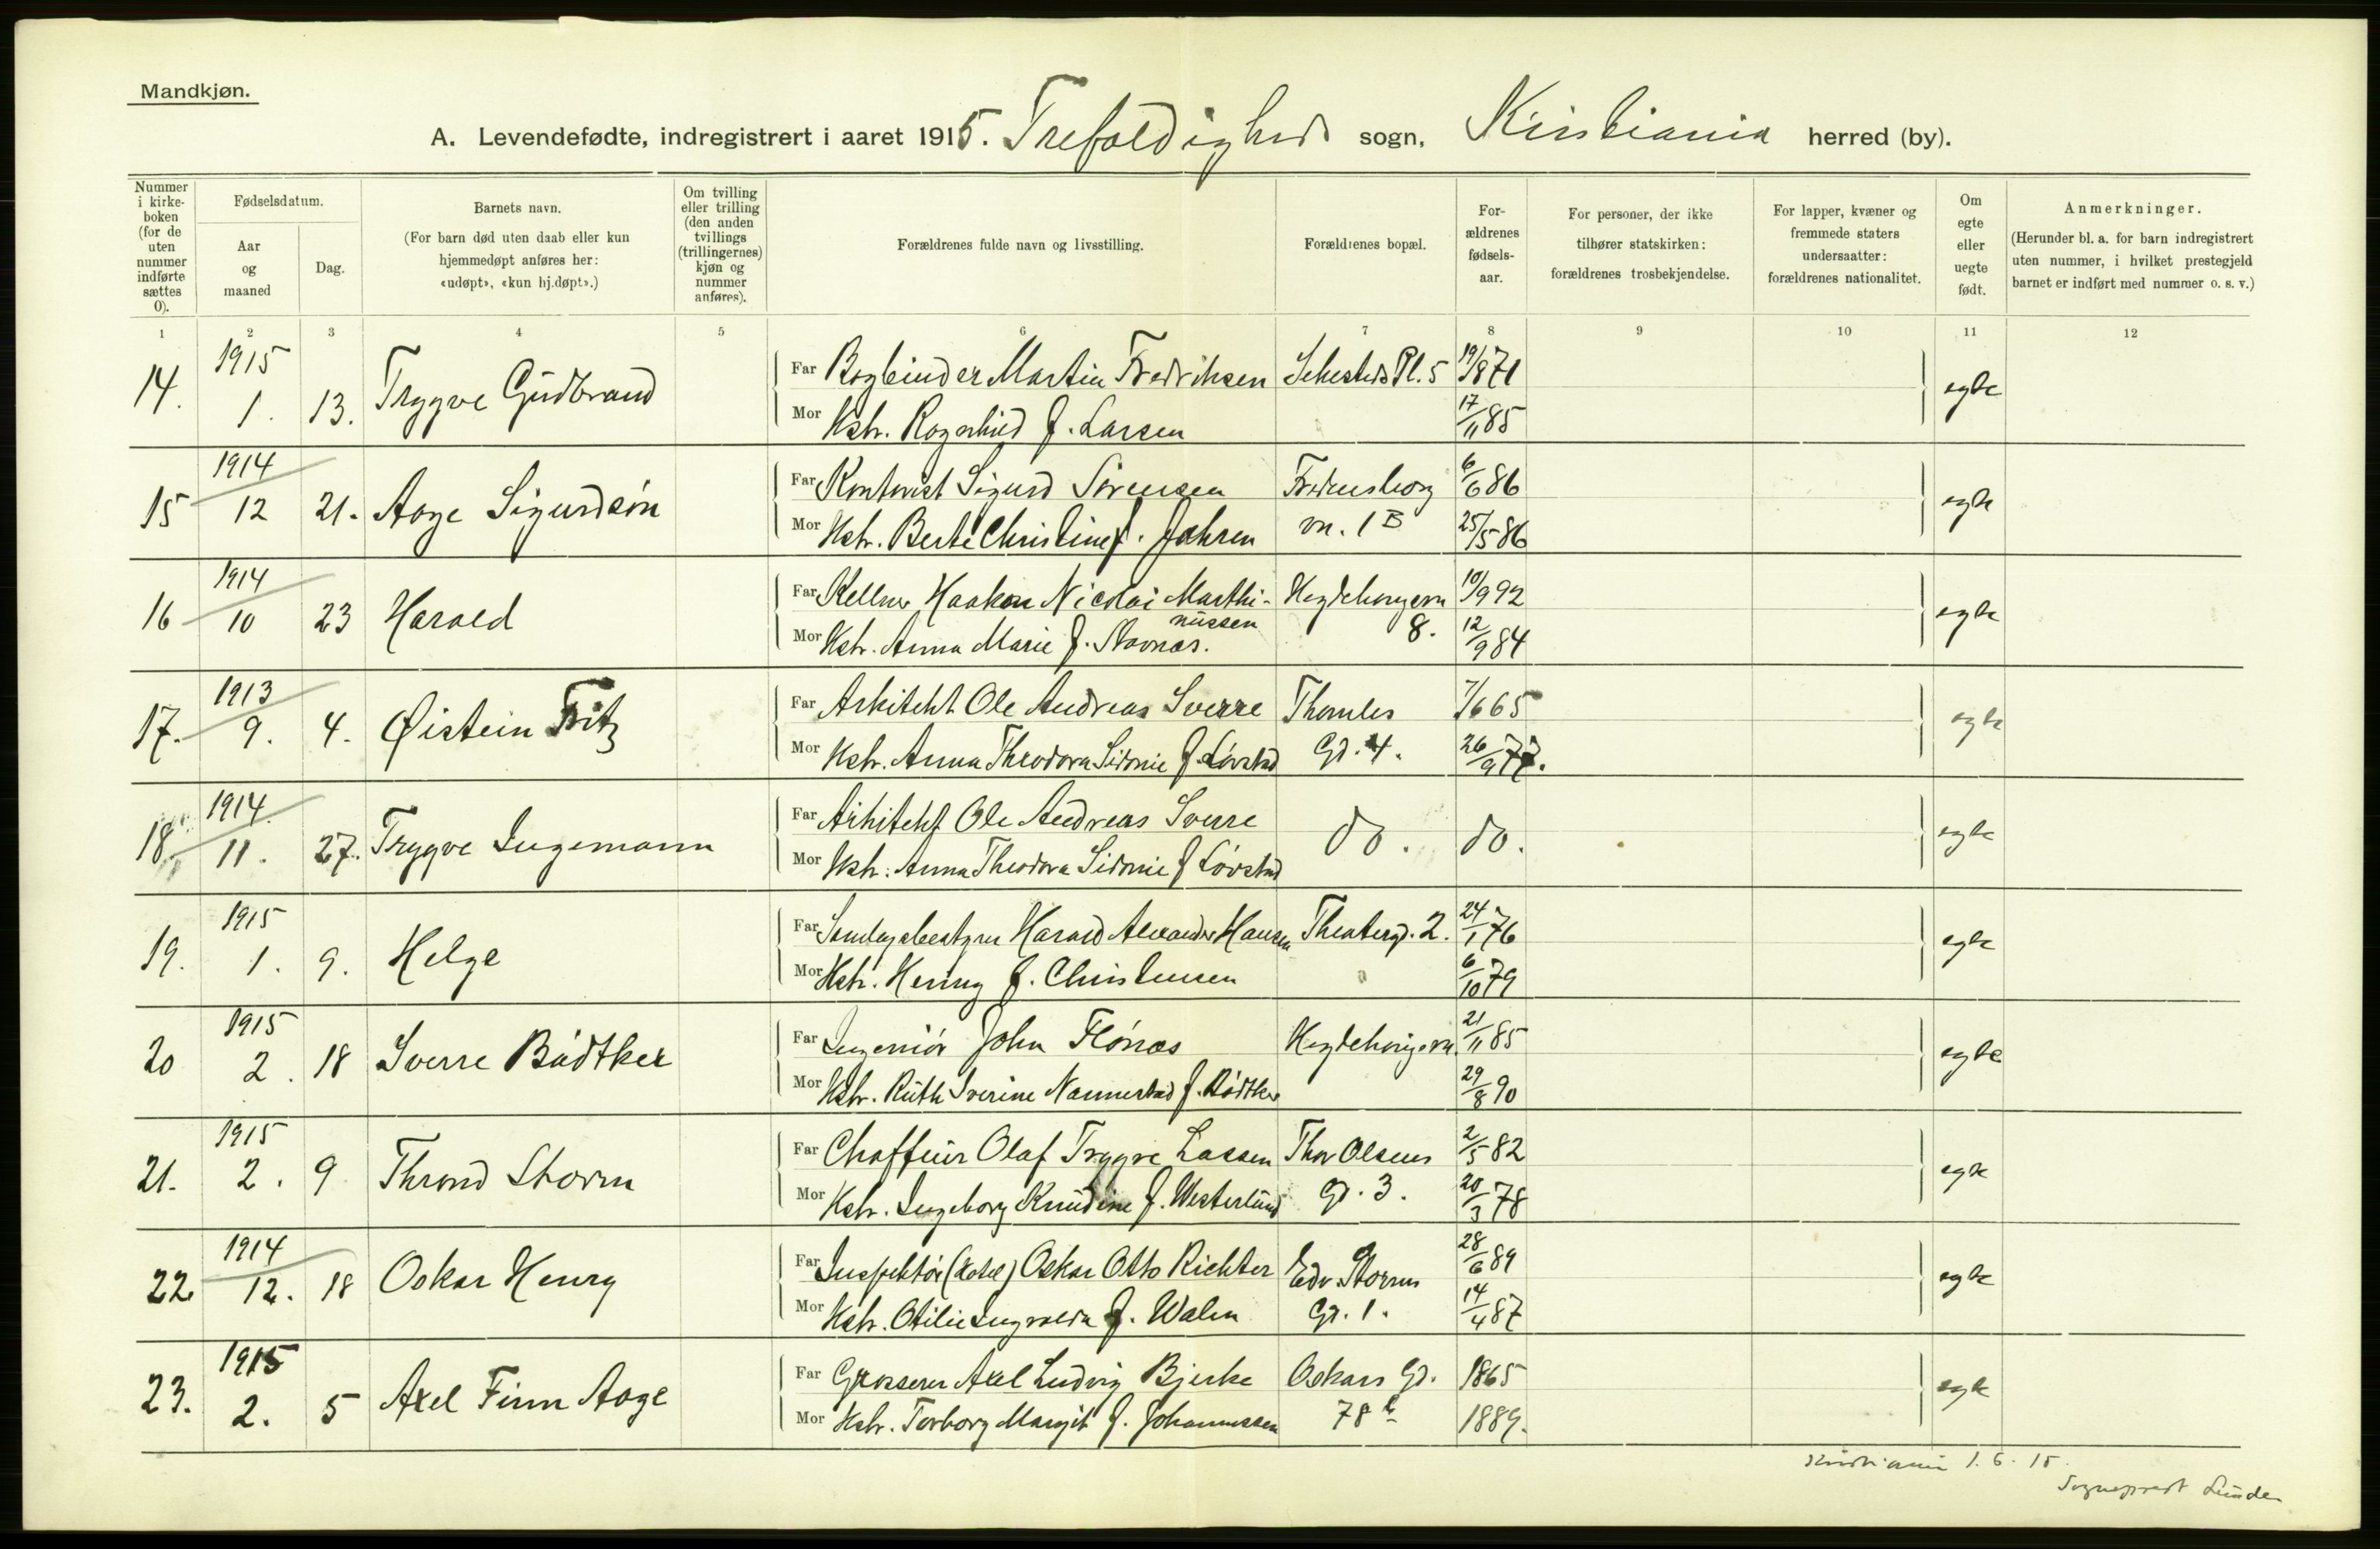 Mandkjøn.
A. Levendefødte, indregistrert i aaret 1915. Trefoldigheds sogn, Kristiania herred (by).
Nummer i kirke-boken (for de uten nummer indførte sættes 0).
Fødselsdatum.
Aar og maaned
Dag.
Barnets navn.
(For barn død uten daab eller kun hjemmedøpt anføres her: «udøpt», «kun hj.døpt».)
Om tvilling eller trilling (den anden tvillings (trillingernes) kjøn og nummer anføres).
Forældrenes fulde navn og livsstilling.
Forældrenes bopæl.
For-ældrenes fødsels-aar.
For personer, der ikke tilhører statskirken: forældrenes trosbekjendelse.
For lapper, kvæner og fremmede staters undersaatter: forældrenes nationalitet.
Om egte eller uegte født.
Anmerkninger.
(Herunder bl. a. for barn indregistrert uten nummer, i hvilket prestegjeld barnet er indført med nummer o. s. v.)
1 2 3 4 5 6 7 8 9 10 11 12
14. 1915 1. 13. Trygve Gudbrand Far Bogbinder Martin Fredriksen Sehesteds Pl. 5 19/8 71 egte
Mor Hstr. Ragnhild f. Larsen 17/11 85
15 1914 12 21. Aage Sigurdsøn Far Kontorist Sigurd Sørensen Fredensborg 6/6 86 egte
Mor Hstr. Berte Christine f. Jahren vn. 1 B 25/5 86
16 1914 10 23 Harald Far Kellner Haakon Nicolai Marthi-nussen Hegdehaugsvn 10/9 92 egte
Mor Hstr. Anna Marie f. Stavnæs. 8. 12/9 84
17. 1913 9. 4. Øistein Fritz Far Arkitekt Ole Andreas Sverre Thomles 7/6 65 egte
Mor Hstr. Anna Theodora Sidonie f. Løvstad Gd. 4. 26/9 77.
18. 1914. 11. 27. Trygve Ingemann Far Arkitekt Ole Andreas Sverre do. do. egte
Mor Hstr. Anna Theodora Sidonie f Løvstad
19. 1915 1. 9. Helge Far Harald Alexander Hansen Theatergd. 2. 24/1 76 egte
Mor Hstr. Henny f. Christensen 6/10 79
20 1915 2. 18 Sverre Bødtker Far Ingeniør John Flønæs Hegdehaugsvn. 21/11 85 egte
Mor Hstr. Ruth Severine Nannestad f. Bødtker 29/8 90
21. 1915 2. 9 Thrond Storm Far Chaffeur Olaf Trygve Lassen Thor Olsens 2/5 82 egte
Mor Hstr. Ingeborg Knudine f. Westerlund Gd. 3. 20/3 78
22 1914 12. 18 Oskar Henry Far Inspektør (Hotel) Oskar Otto Richter Edv. Storms 28/6 89 egte
Mor Hstr. Otilie Ingvalda f. Walen Gd. 1. 14/4 87
23. 1915 2. 5 Axel Finn Aage Far Grosserer Axel Ludvig Bjerke Oskars Gd. 1865 egte
Mor Hstr. Torborg Margit f. Johannessen 78 b 1889.
Kristiania 1. 6. 15.
Sogneprest Lunde